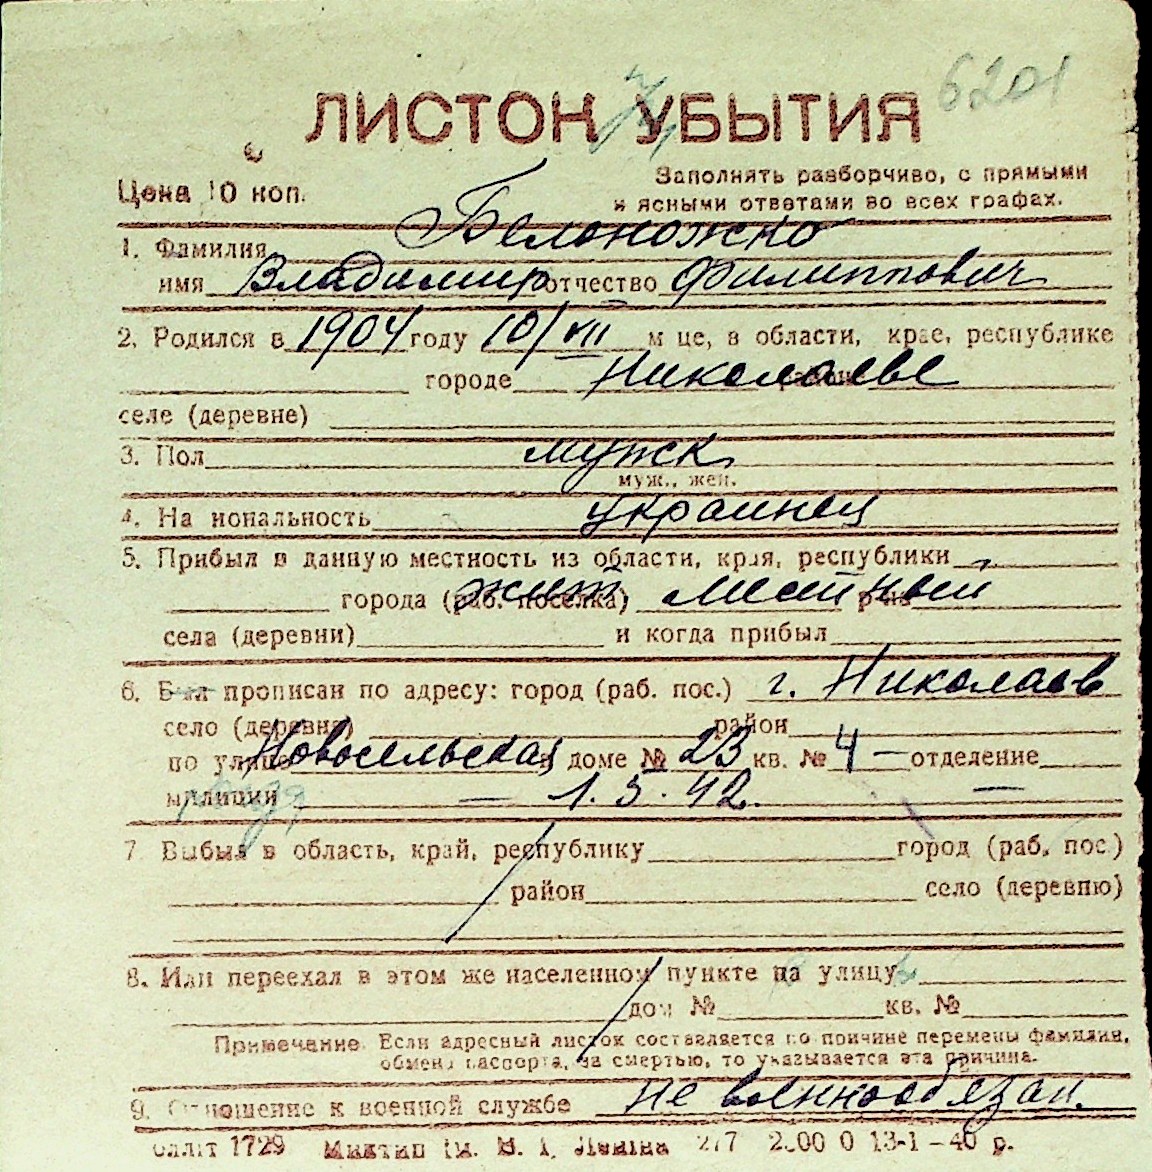 6201
ЛИСТОК УБЫТИЯ
Цена 10 коп. Заполнять разборчиво, с прямыми
и ясными ответами во всех графах.
1. Фамилия Белоножко
имя Владимир отчество Филиппович
2. Родился в 1904 году 10/VII м це, в области, крае, республике
городе Николаеве
селе (деревне)
3. Пол мужск
муж., жен.
4. На иональность украинец
5. Прибыл в данную местность из области, края, республики
города (раб. поселка) жит местный р-на
села (деревни) и когда прибыл
6. Был прописан по адресу: город (раб. пос.) г. Николаев
село (деревня) район
по улице Новосельская в доме № 23 кв. № 4 — отделение
милиции — 1.5.42. —
7. Выбыл в область, край, республику город (раб. пос.)
район село (деревню)
8. Или переехал в этом же населенном пункте на улицу
дом № кв. №
Примечание. Если адресный листок составляется по причине перемены фамилии,
обмена паспорта, за смертью, то указывается эта причина.
9. Отношение к военной службе не военнообязан.
1729 Ленина 2.00 0 13-1-40 р.